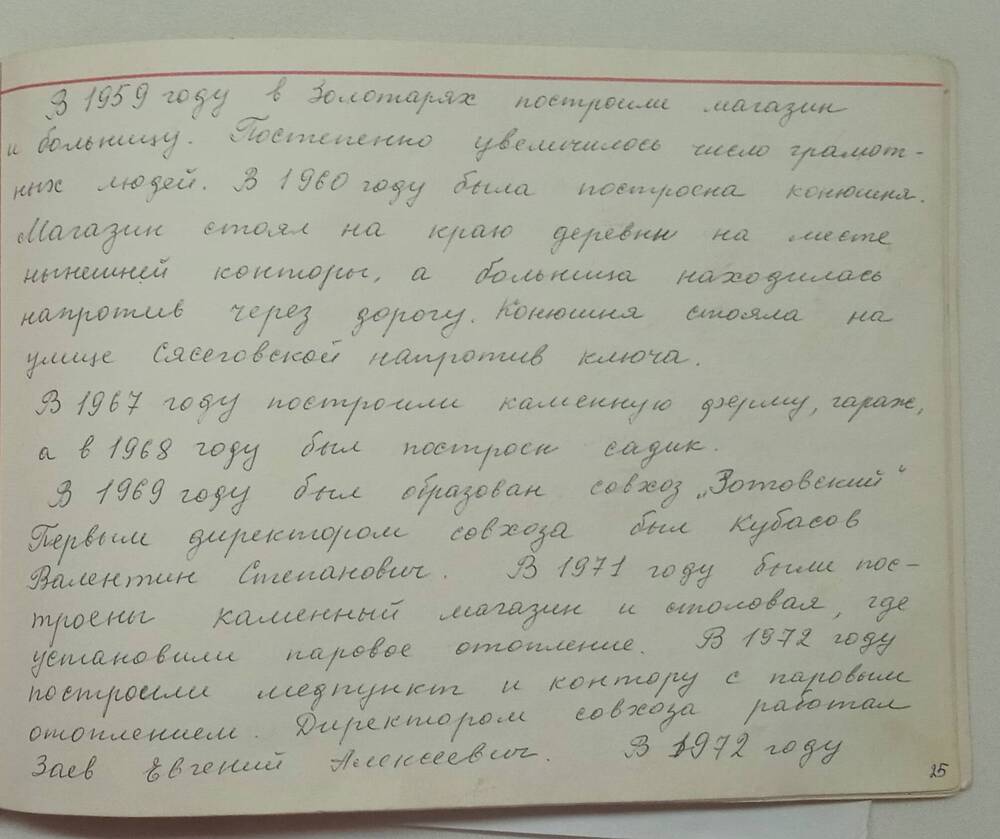 В 1959 году в Золотарях построили магазин
и больницу. Постепенно увеличилось число грамот-
ных людей. В 1960 году была построена конюшня.
Магазин стоял на краю деревни на месте
нынешней конторы, а больница находилась
напротив через дорогу. Конюшня стояла на
улице Сясеговской напротив ключа.
В 1967 году построили каменную ферму, гараж,
а в 1968 году был построен садик.
В 1969 году был образован совхоз „Зотовский“
Первым директором совхоза был Кубасов
Валентин Степанович. В 1971 году были пос-
троены каменный магазин и столовая, где
установили паровое отопление. В 1972 году
построили медпункт и контору с паровым
отоплением. Директором совхоза работал
Заев Евгений Алексеевич. В 1972 году
25